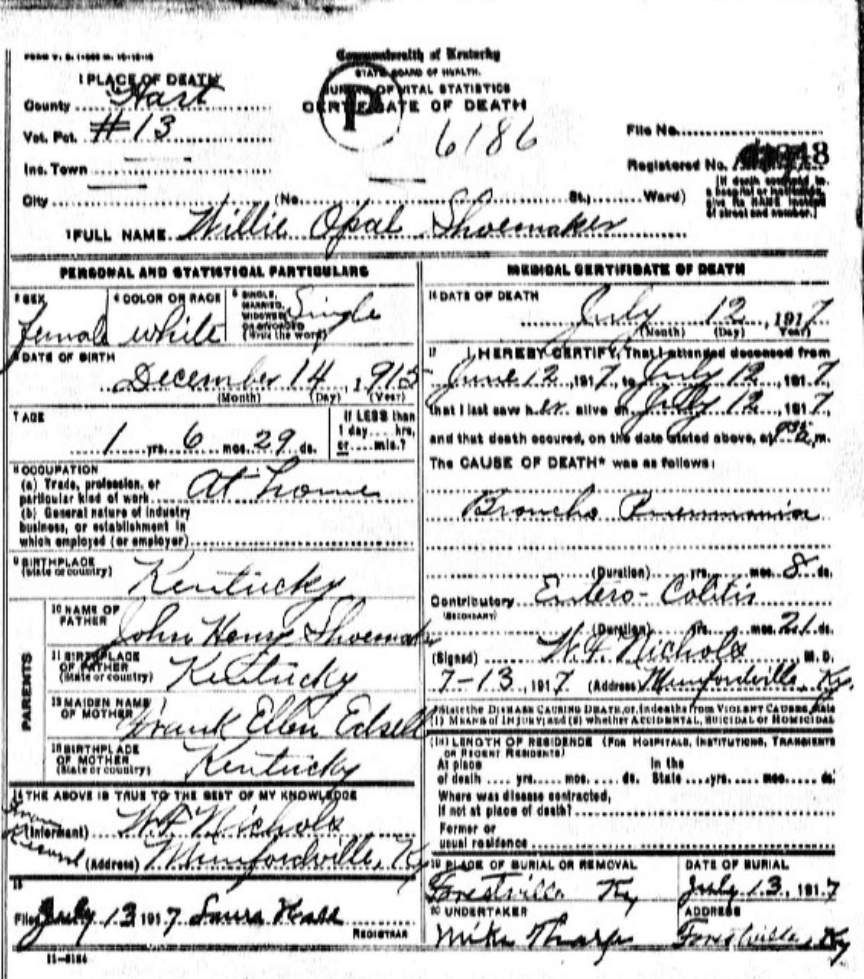 Commonwealth of Kentucky
STATE BOARD OF HEALTH.
BUREAU OF VITAL STATISTICS
CERTIFICATE OF DEATH
P
6186
1 PLACE OF DEATH
County Hart
Vot. Pct. #13
Inc. Town
City (No. St., Ward)
File No.
Registered No.
[If death occurred in
a hospital or institution,
give its NAME instead
of street and number.]
2 FULL NAME Willie Opal Shoemaker
PERSONAL AND STATISTICAL PARTICULARS
3 SEX female
4 COLOR OR RACE white
5 SINGLE, MARRIED, WIDOWED OR DIVORCED (Write the word) Single
6 DATE OF BIRTH
December 14, 1915
(Month) (Day) (Year)
7 AGE
1 yrs. 6 mos. 29 ds.
If LESS than
1 day.... hrs,
or.... mis.?
8 OCCUPATION
(a) Trade, profession, or
particular kind of work At home
(b) General nature of industry
business, or establishment in
which employed (or employer)
9 BIRTHPLACE
(State or country) Kentucky
PARENTS
10 NAME OF
FATHER John Henry Shoemaker
11 BIRTHPLACE
OF FATHER
(State or country) Kentucky
12 MAIDEN NAME
OF MOTHER Frank Ellen Edsell
13 BIRTHPLACE
OF MOTHER
(State or country) Kentucky
14 THE ABOVE IS TRUE TO THE BEST OF MY KNOWLEDGE
(Informant) W. F. Nichols
(Address) Munfordville, Ky
15
Filed July 13 1917 Laura
REGISTRAR
11-6184
MEDICAL CERTIFICATE OF DEATH
16 DATE OF DEATH
July 12, 1917
(Month) (Day) Year)
17 I HEREBY CERTIFY, That I attended deceased from
June 12, 1917, to July 12, 1917,
that I last saw her alive on July 12, 1917,
and that death occured, on the date stated above, at m.
The CAUSE OF DEATH* was as follows:
Broncho Pneumonia
(Duration) yrs. mos. 8 ds.
Contributory Entero-Colitis
(SECONDARY)
(Duration) yrs. mos. 21 ds.
(Signed) W. F. Nichols M. D.
7-13, 1917 (Address) Munfordville, Ky.
*State the DISEASE CAUSING DEATH, or, in deaths from VIOLENT CAUSES, state
(1) MEANS OF INJURY; and (2) whether ACCIDENTAL, SUICIDAL or HOMICIDAL
18 LENGTH OF RESIDENCE (FOR HOSPITALS, INSTITUTIONS, TRANSIENTS
OR RECENT RESIDENTS)
At place In the
of death .... yrs.... mos.... ds. State ....yrs..... mos..... ds.
Where was disease contracted,
if not at place of death?
Former or
usual residence
19 PLACE OF BURIAL OR REMOVAL
Forestville Ky
DATE OF BURIAL
July 13, 1917
20 UNDERTAKER
Mike Tharp
ADDRESS
Forestville, Ky